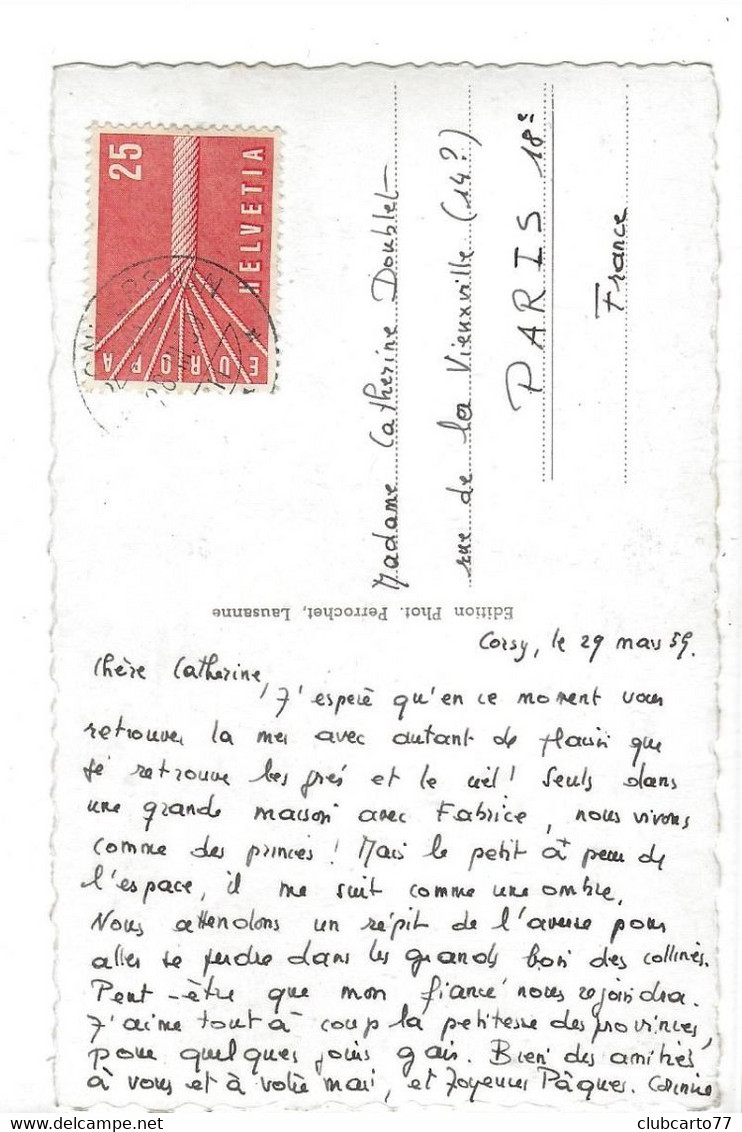 25
HELVETIA
EUROPA
Madame Catherine Doublet
rue de la Vieuxville (14?)
PARIS 18e
France
Edition Phot. Perrochet, Lausanne
Corsy, le 29 mars 59.
Chère Catherine,
J'espère qu'en ce moment vous
retrouvez la mer avec autant de plaisir que
je retrouve les prés et le ciel! Seuls dans
une grande maison avec Fabrice, nous vivons
comme des princes! Mais le petit a peur de
l'espace, il me suit comme une ombre.
Nous attendons un répit de l'averse pour
aller se perdre dans les grands bois des collines.
Peut-être que mon fiancé nous rejoindra.
J'aime tout à coup la petitesse des provinces,
pour quelques jours gais. Bien des amitiés
à vous et à votre mari, et Joyeuses Pâques. Corinne
clubcarto77